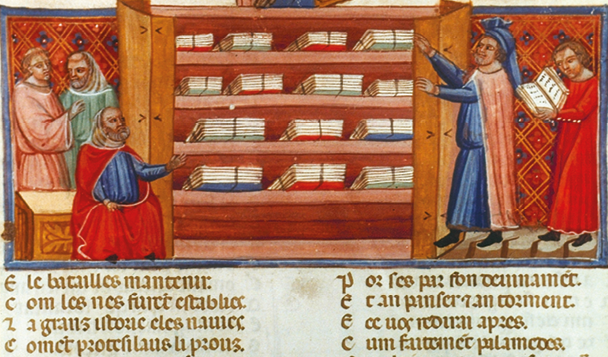 E le batailles mantenir.
C om les nes furēt establies.
L a granz istorie eles nauies.
C omēt protesilaus li prouz.
P or ses par son deuinamēt.
E t an panser ⁊ an torment.
E ce uoz redirai apres.
C um faitemēt palamedes.